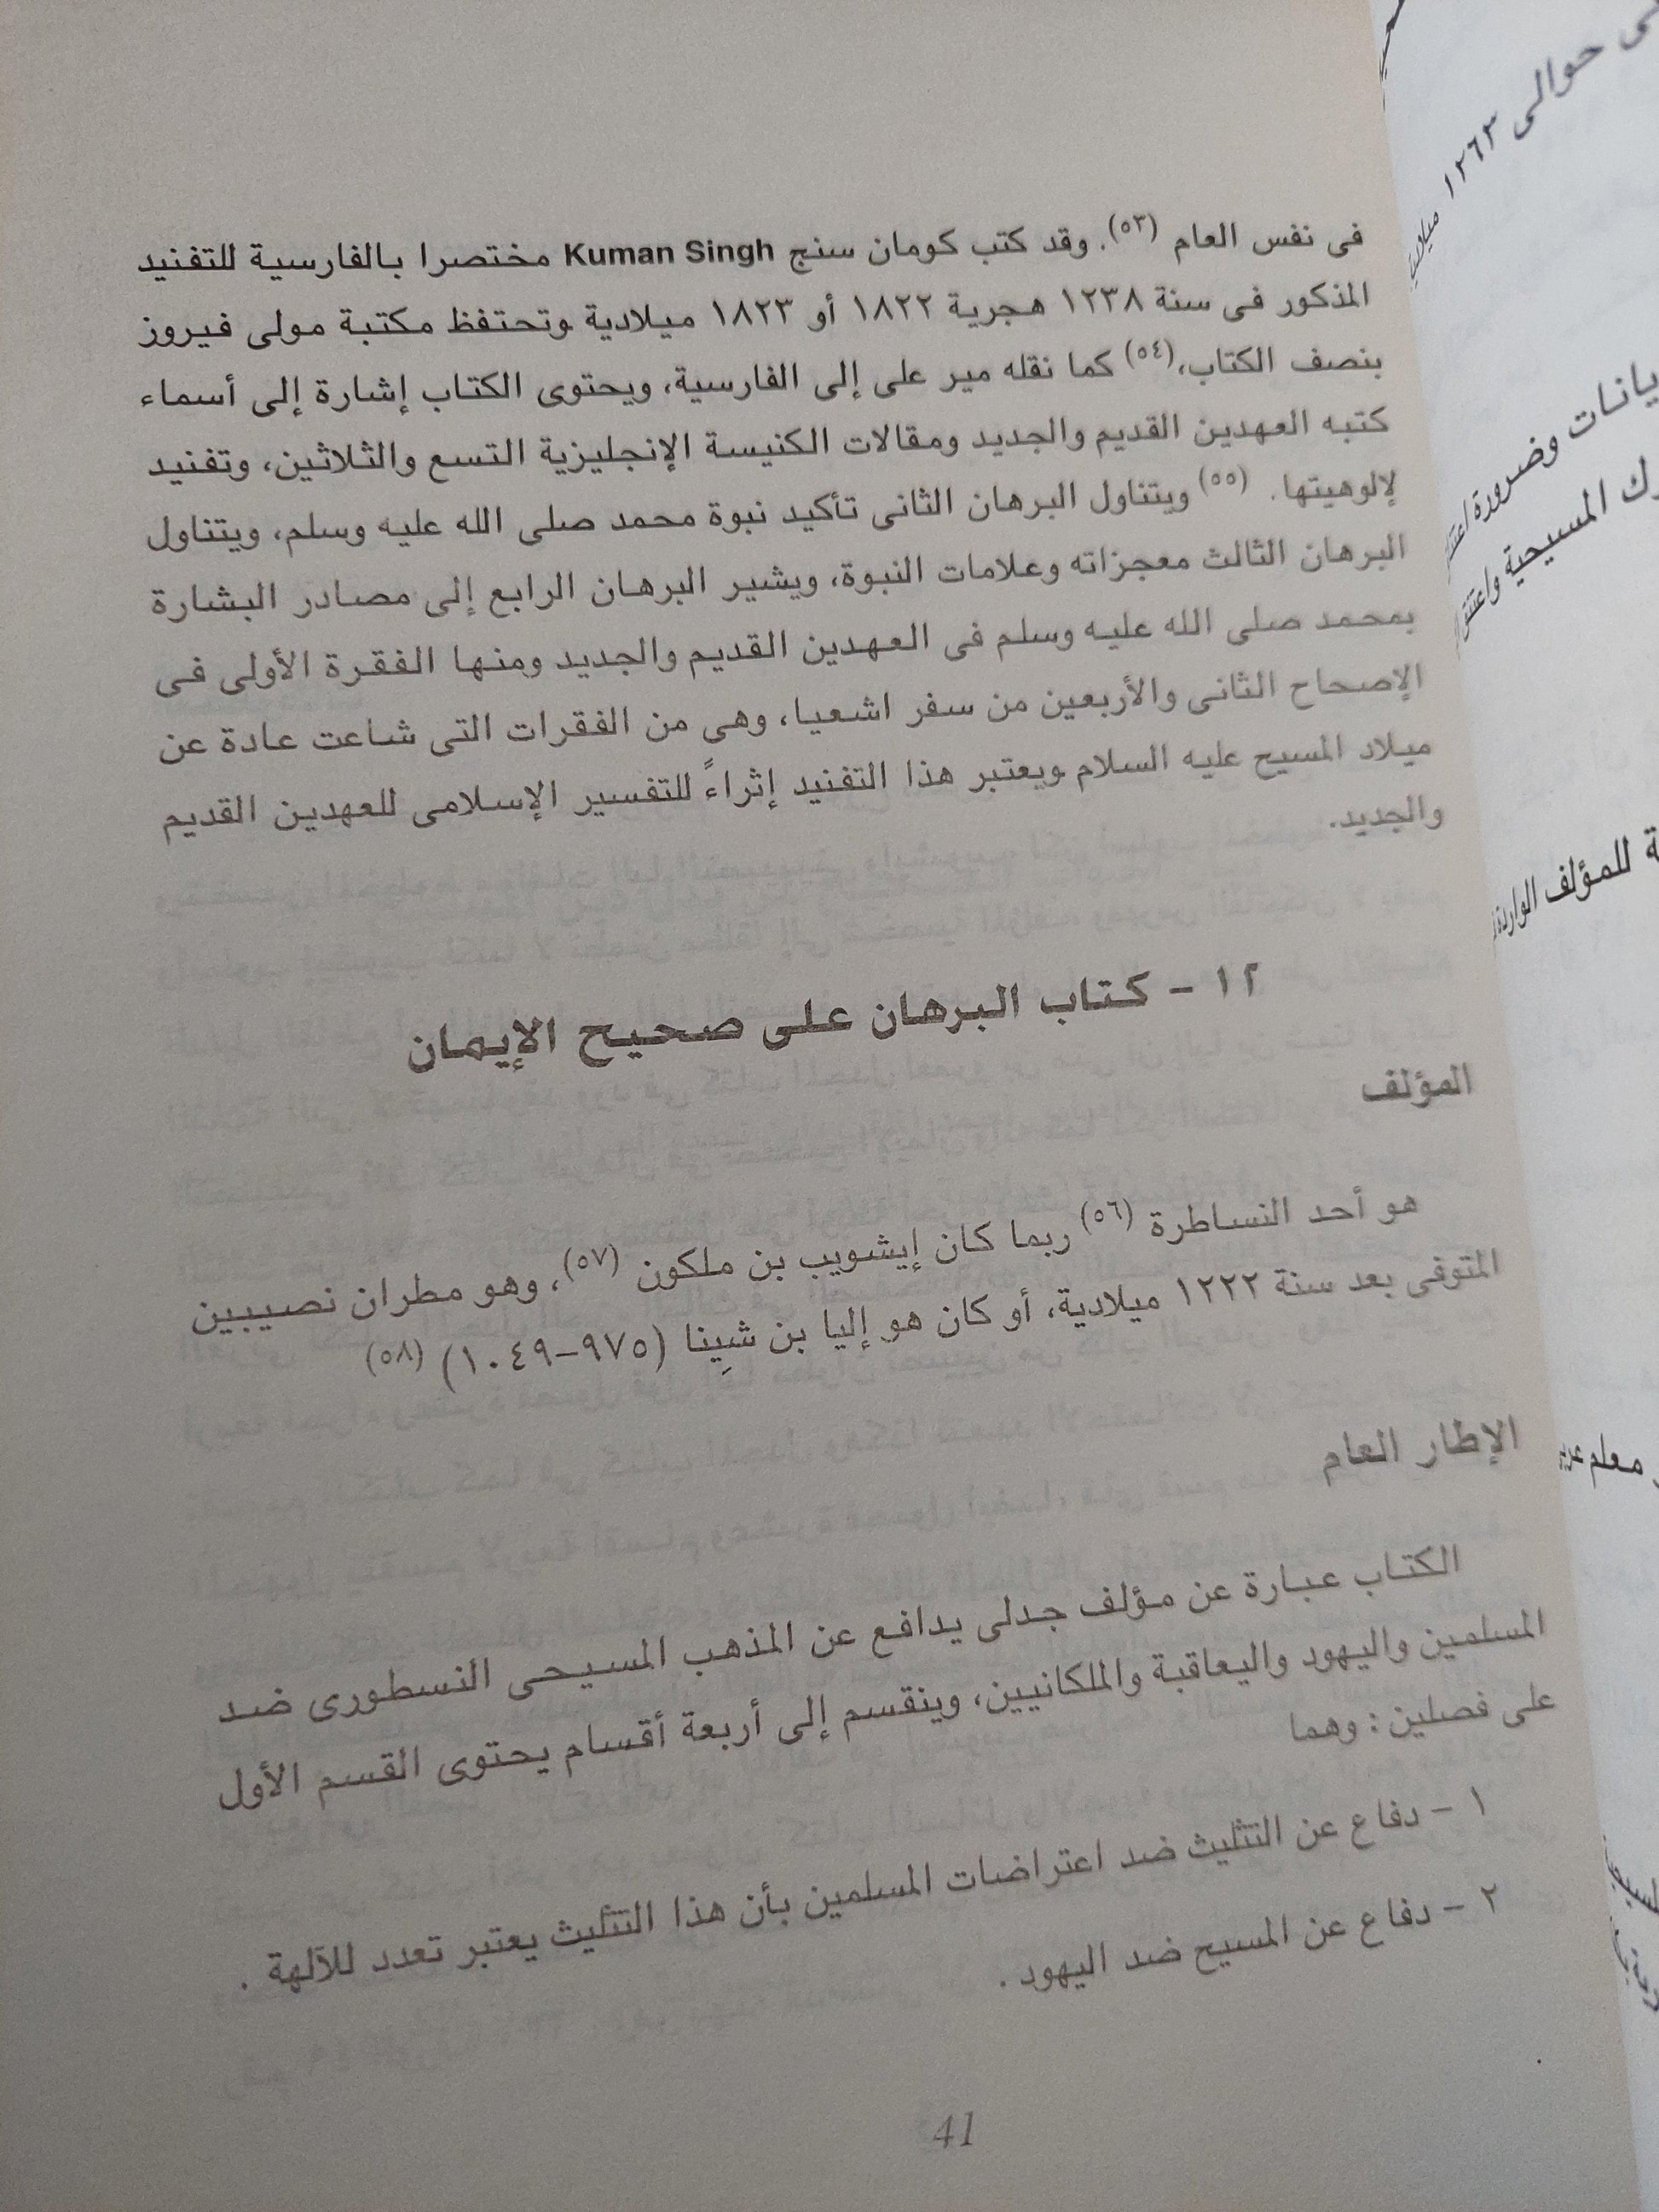 فى نفس العام (٥٣). وقد كتب كومان سنج Kuman Singh مختصرا بالفارسية للتفنيد
المذكور فى سنة ١٢٣٨ هجرية ١٨٢٢ أو ١٨٢٣ ميلادية وتحتفظ مكتبة مولى فيروز
بنصف الكتاب،(٥٤) كما نقله مير على إلى الفارسية، ويحتوى الكتاب إشارة إلى أسماء
كتبه العهدين القديم والجديد ومقالات الكنيسة الإنجليزية التسع والثلاثين، وتفنيد
لإلوهيتها. (٥٥) ويتناول البرهان الثانى تأكيد نبوة محمد صلى الله عليه وسلم، ويتناول
البرهان الثالث معجزاته وعلامات النبوة، ويشير البرهان الرابع إلى مصادر البشارة
بمحمد صلى الله عليه وسلم فى العهدين القديم والجديد ومنها الفقرة الأولى فى
الإصحاح الثانى والأربعين من سفر اشعيا، وهى من الفقرات التى شاعت عادة عن
ميلاد المسيح عليه السلام ويعتبر هذا التفنيد إثراءً للتفسير الإسلامى للعهدين القديم
والجديد.
١٢ - كتاب البرهان على صحيح الإيمان
المؤلف
هو أحد النساطرة (٥٦) ربما كان إيشويب بن ملكون (٥٧)، وهو مطران نصيبين
المتوفى بعد سنة ١٢٢٢ ميلادية، أو كان هو إليا بن شيِنا (٩٧٥-١٠٤٩) (٥٨)
الإطار العام
الكتاب عبارة عن مؤلف جدلى يدافع عن المذهب المسيحى النسطورى ضد
المسلمين واليهود واليعاقبة والملكانيين، وينقسم إلى أربعة أقسام يحتوى القسم الأول
على فصلين : وهما
١ - دفاع عن التثليث ضد اعتراضات المسلمين بأن هذا التثليث يعتبر تعدد للآلهة .
٢ - دفاع عن المسيح ضد اليهود .
41
حوالى ١٢٦٣ ميلادية
وضرورة
المسيحية
للمؤلف الواردة
معلم